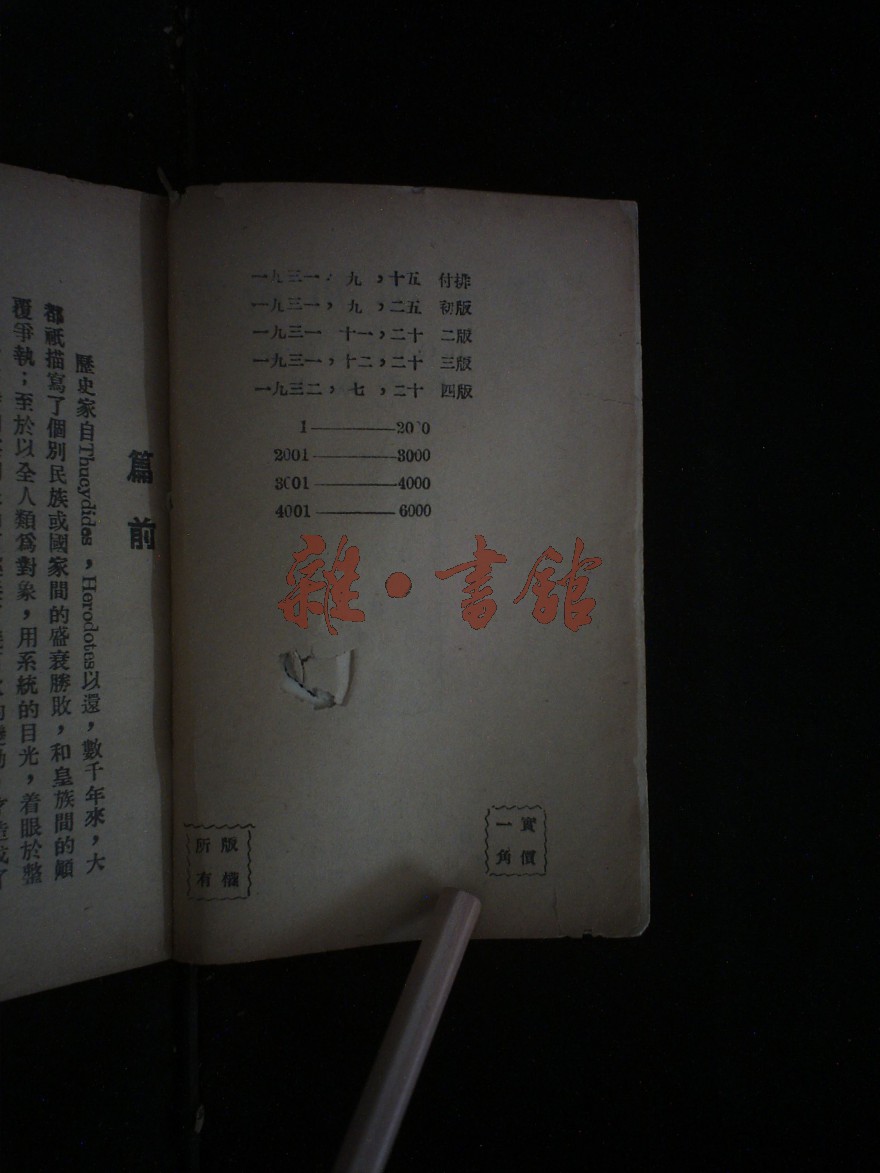 一九三一，九，十五　付排
一九三一，九，二五　初版
一九三一　十一，二十　二版
一九三一，十二，二十　三版
一九三二，七，二十　四版
1————2000
2001————3000
3001————4000
4001————6000
雜·書館
實價
一角
版權
所有
篇前
歷史家自Thucydides，Herodotes以還，數千年來，大
都祇描寫了個別民族或國家間的盛衰勝敗，和皇族間的顛
覆爭執；至於以全人類爲對象，用系統的目光，着眼於整